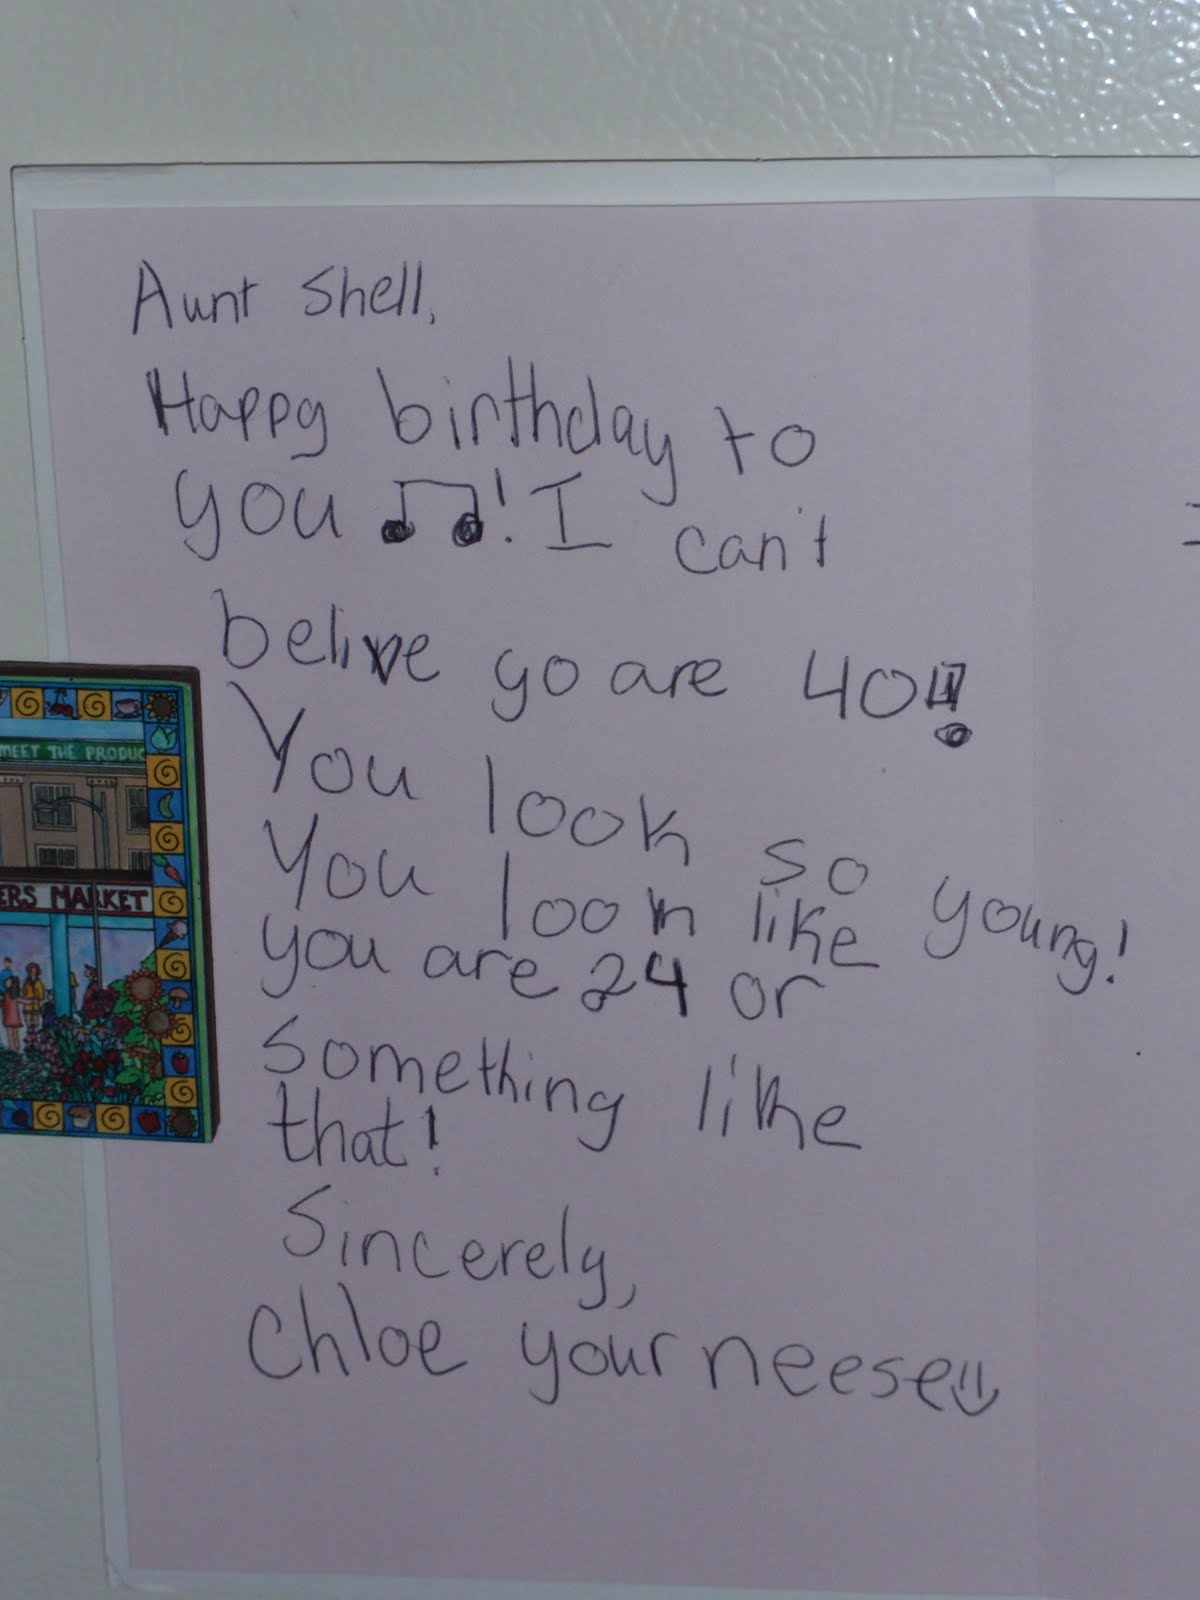 Aunt Shell,
Happy birthday to
you ♫! I can't
belive yo are 40!!
You look so young!
You look like
you are 24 or
something like
that!
Sincerely,
Chloe your neese
MEET THE PRODUC
ERS MARKET